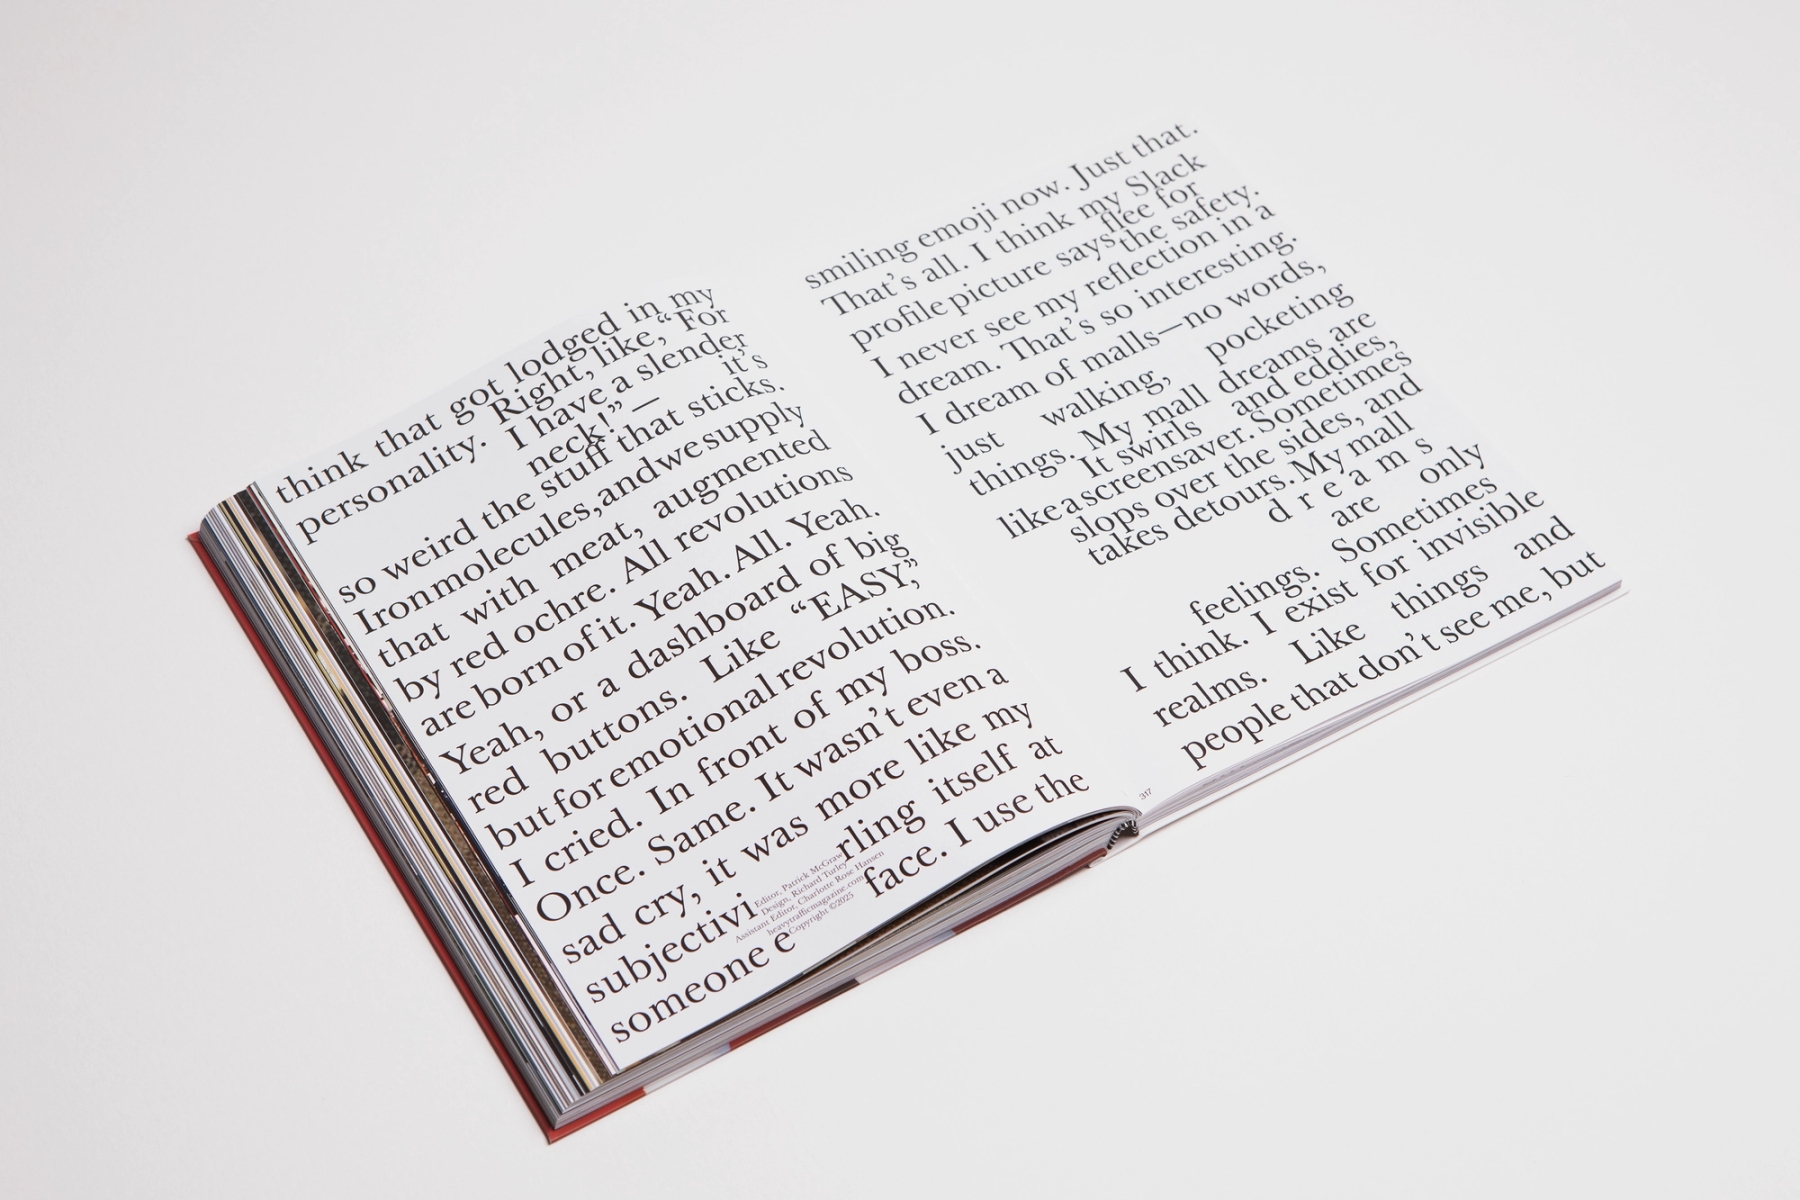 think that got lodged in my
personality. Right, like, “For
I have a slender
neck!”— it’s
so weird the stuff that sticks.
Iron molecules, and we supply
that with meat, augmented
by red ochre. All revolutions
are born of it. Yeah. All. Yeah.
Yeah, or a dashboard of big
red buttons. Like “EASY,”
but for emotional revolution.
I cried. In front of my boss.
Once. Same. It wasn’t even a
sad cry, it was more like my
subjectivi rling itself at
someone e face. I use the
Editor, Patrick McGraw
Design, Richard Turley
Assistant Editor, Charlotte Rose Hansen
heavytrafficmagazine.com
Copyright ©2025
smiling emoji now. Just that.
That’s all. I think my Slack
profile picture says flee for
the safety.
I never see my reflection in a
dream. That’s so interesting.
I dream of malls—no words,
just walking, pocketing
things. My mall dreams are
It swirls and eddies,
like a screensaver. Sometimes
slops over the sides, and
takes detours. My mall
d r e a m s
are only
feelings. Sometimes
I think. I exist for invisible
realms. Like things and
people that don’t see me, but
317